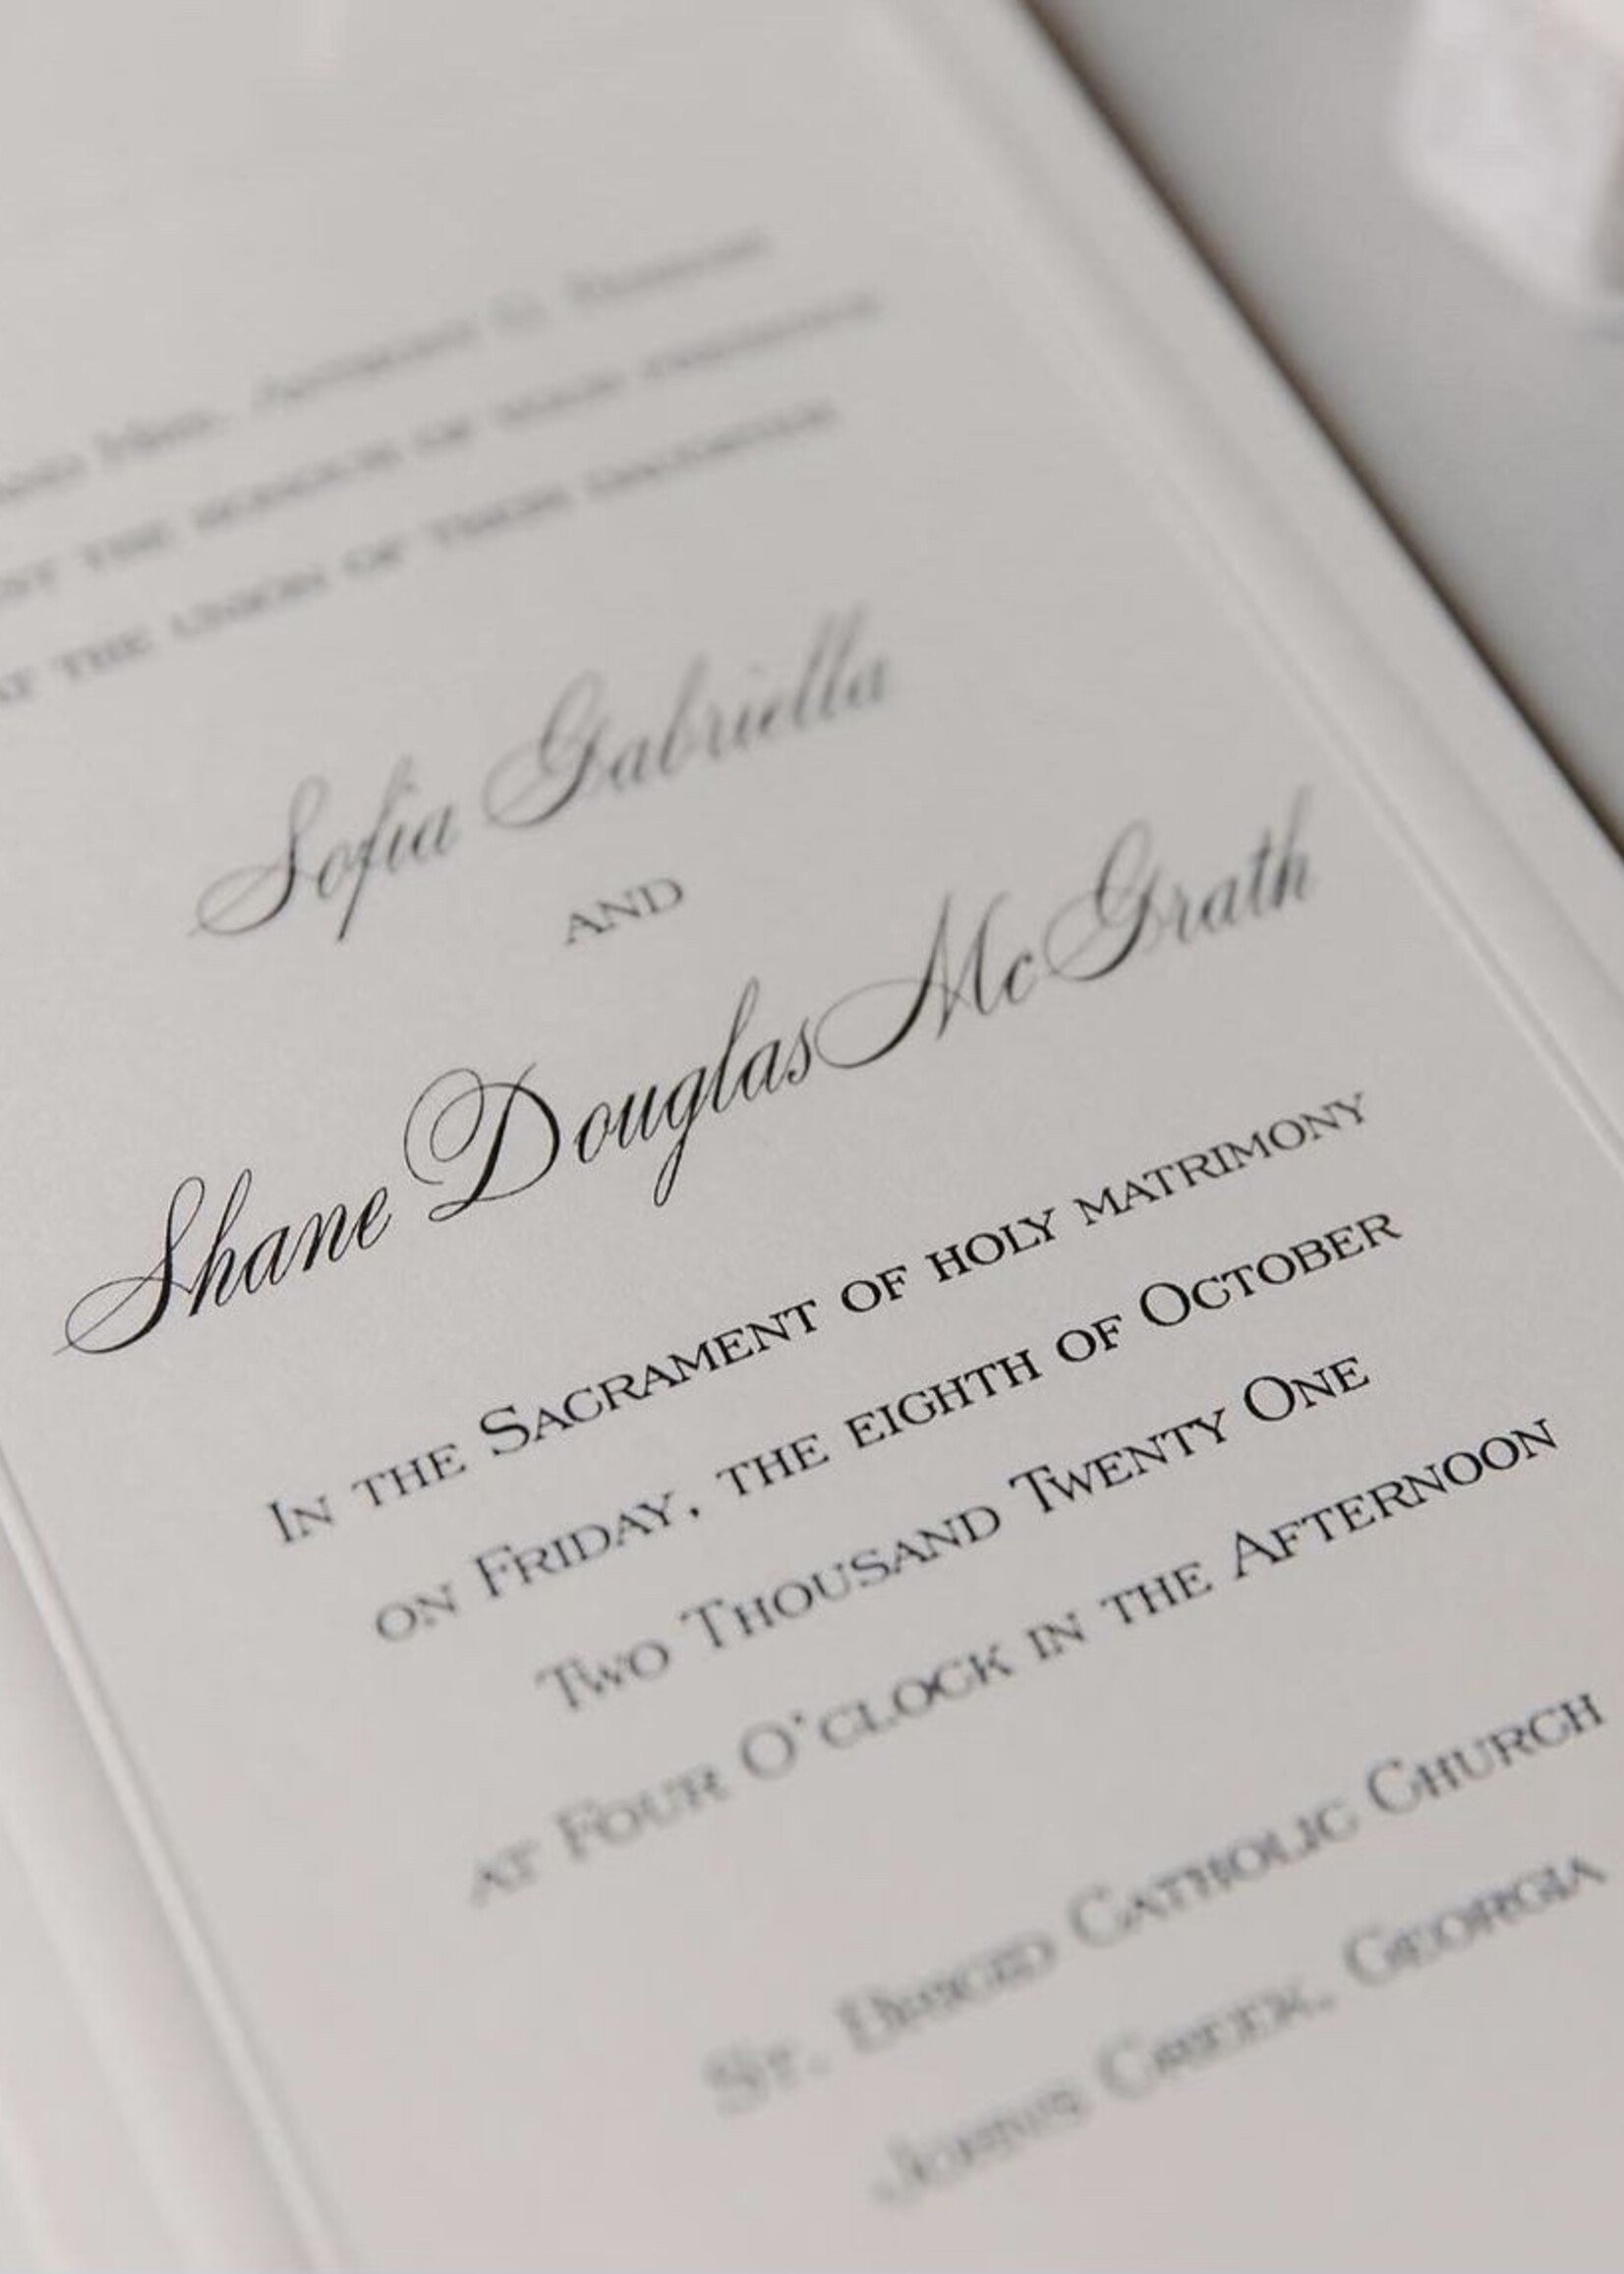 THE HONOUR OF YOUR PRESENCE
AT THE UNION OF THEIR DAUGHTER
Sofia Gabriella
AND
Shane Douglas McGrath
IN THE SACRAMENT OF HOLY MATRIMONY
ON FRIDAY, THE EIGHTH OF OCTOBER
TWO THOUSAND TWENTY ONE
AT FOUR O'CLOCK IN THE AFTERNOON
ST. CATHOLIC CHURCH
JOHNS CREEK, GEORGIA